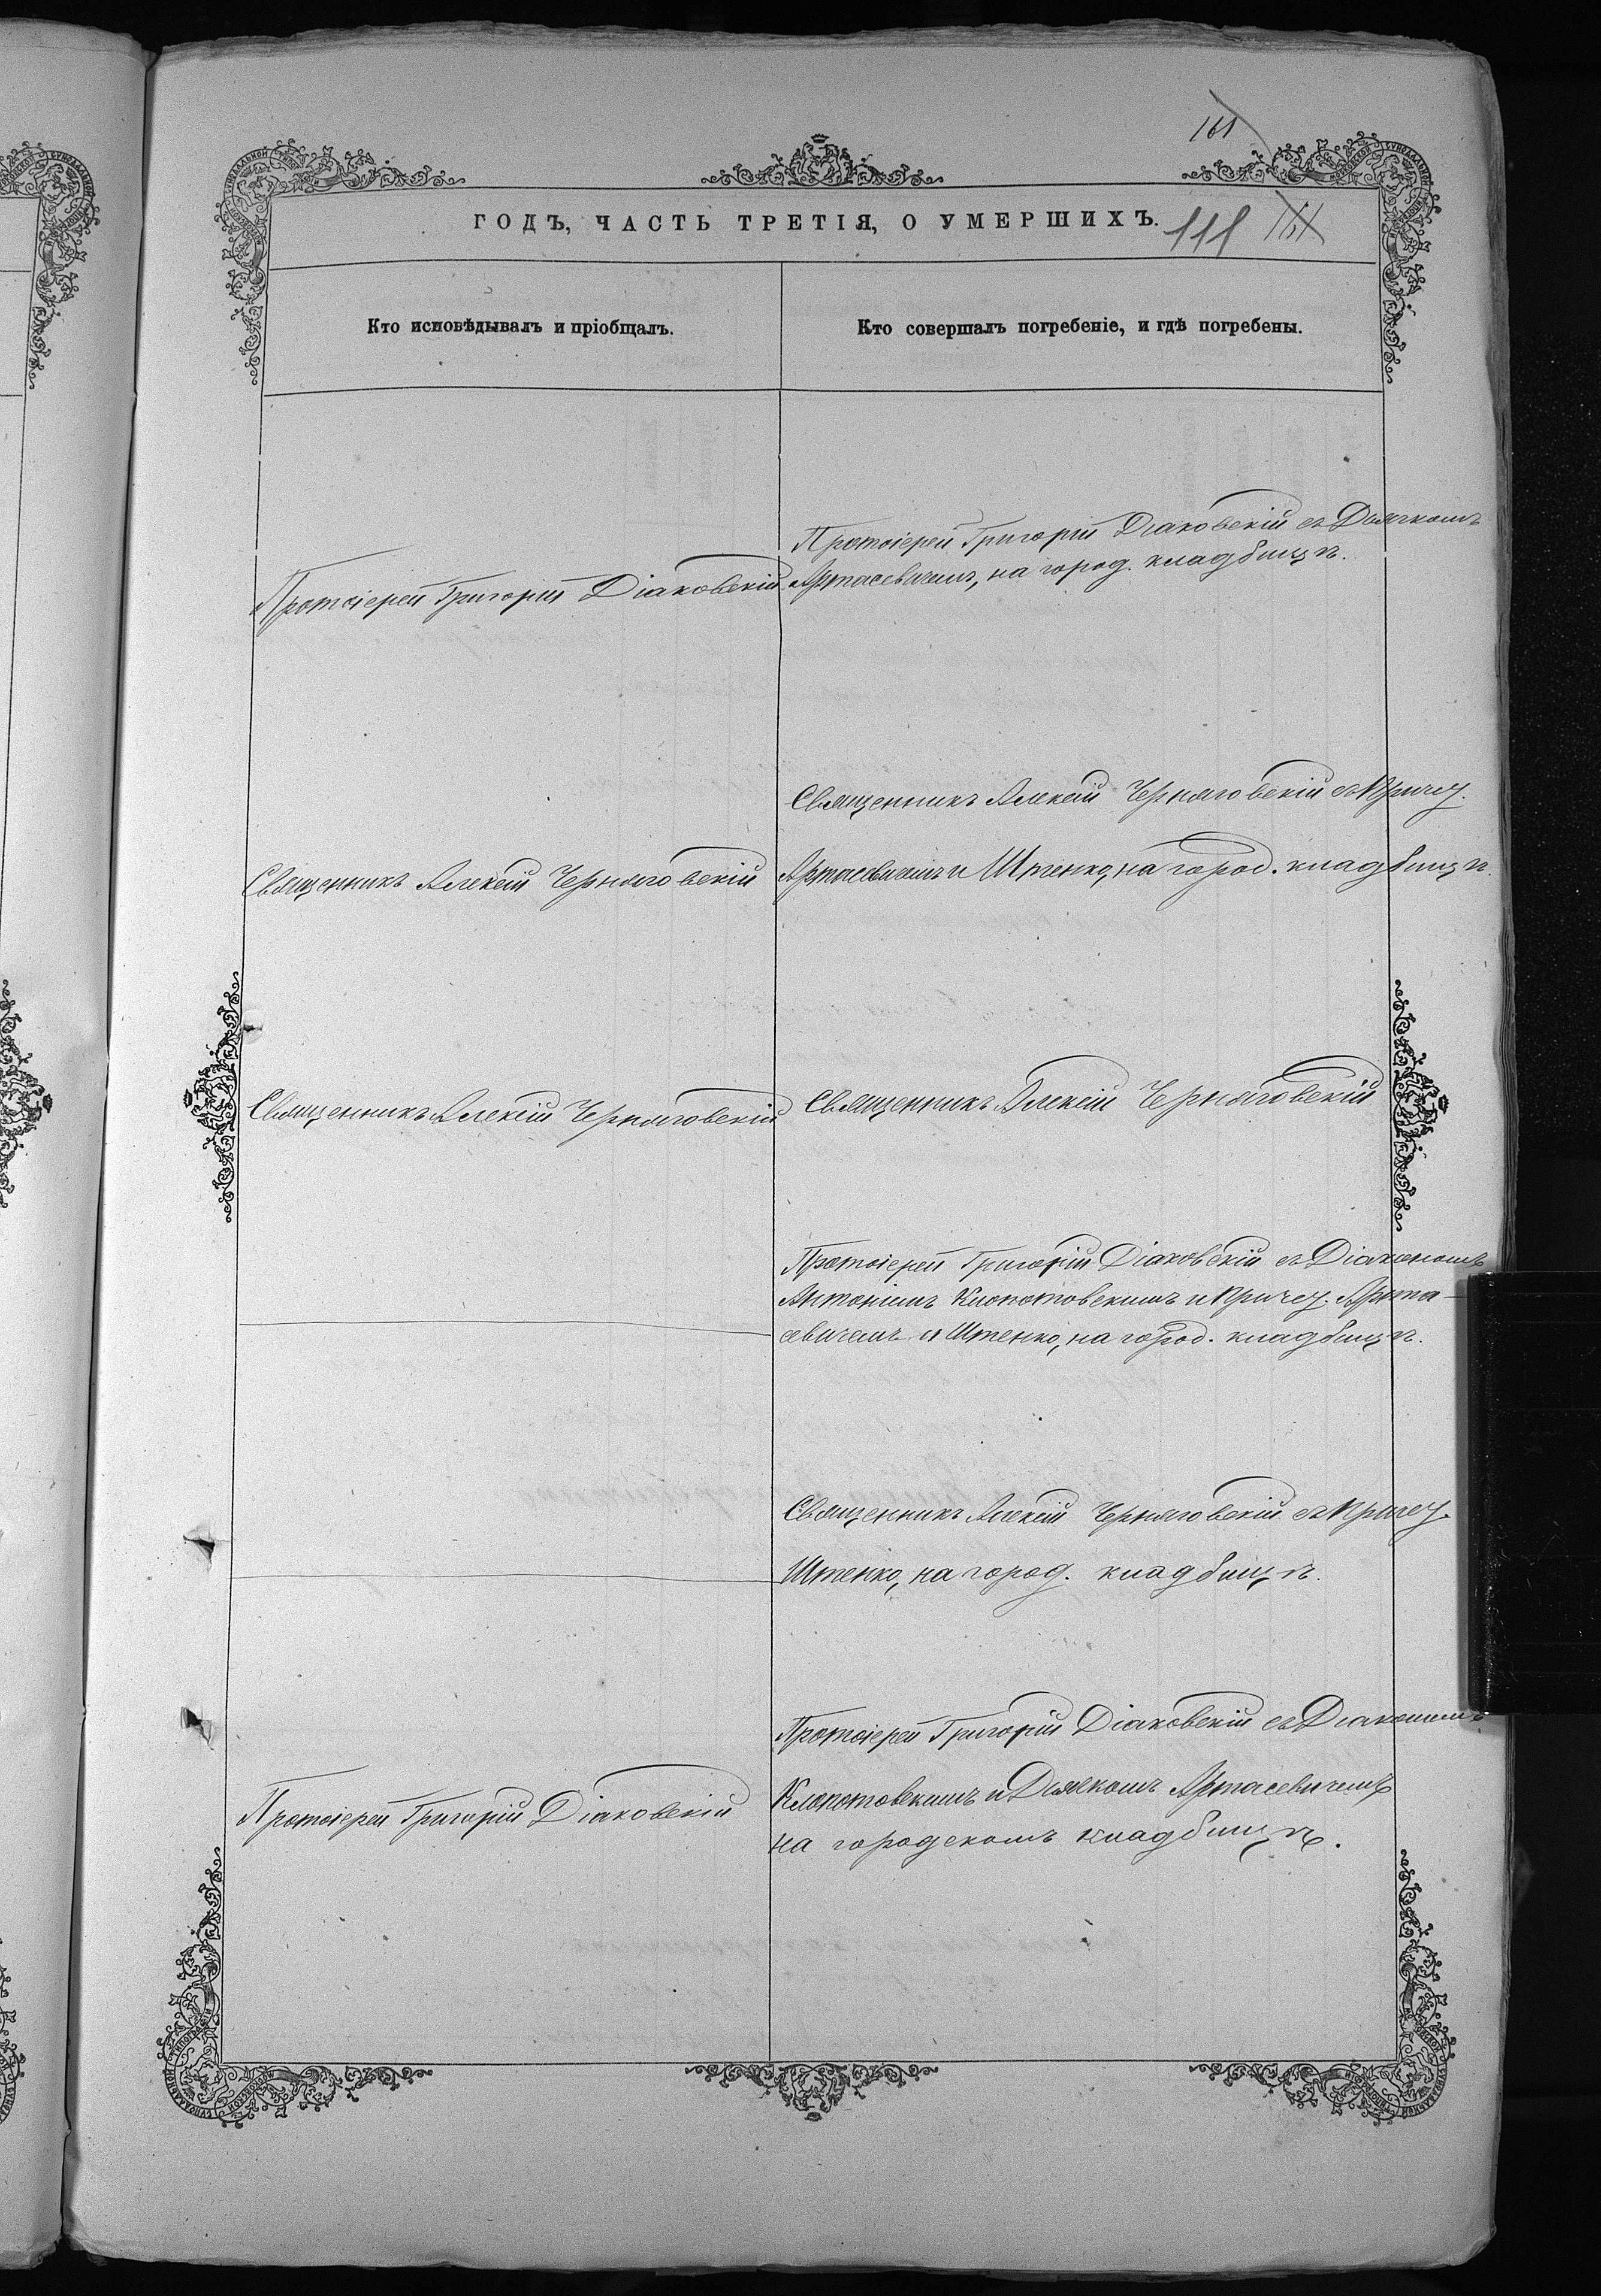 161
ГОДЪ, ЧАСТЬ ТРЕТІЯ, О УМЕРШИХЪ. 111 161
Кто исповѣдывалъ и пріобщалъ.
Кто совершалъ погребеніе, и гдѣ погребены.
Протоіерей Григорій Діаковскій
Протоіерей Григорій Діаковскій съ Дьячкомъ
Артасевичемъ, на город. кладбищѣ.
Священникъ Алексій Черняговскій
Священникъ Алексій Черняговскій съ Причет.
Артасевичемъ и Штенко, на город. кладбищѣ.
Священникъ Алексій Черняговскій
Священникъ Алексій Черняговскій
Протоіерей Григорій Діаковскій съ Діакономъ
Антоніемъ Клопотовскимъ и Причет. Арта-
севичемъ и Штенко, на город. кладбищѣ.
Священникъ Алексій Черняговскій съ Причет.
Штенко, на город. кладбищѣ.
Протоіерей Григорій Діаковскій
Протоіерей Григорій Діаковскій съ Діакономъ
Клопотовскимъ и Дьячкомъ Артасевичемъ
на городскомъ кладбищѣ.